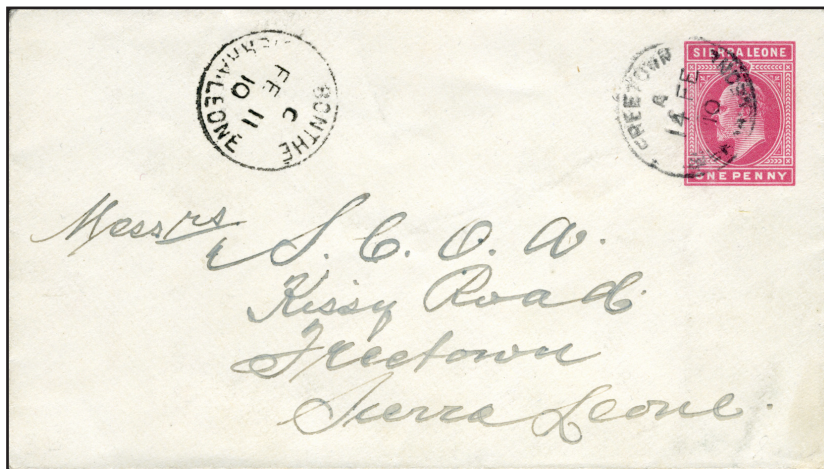 BONTHE
C
FE 11
10
SIERRA-LEONE
FREETOWN
A
14 FE
10
SIERRA LEONE
ONE PENNY
Messrs
S. C. O. A.
Kissy Road
Freetown
Sierra Leone.